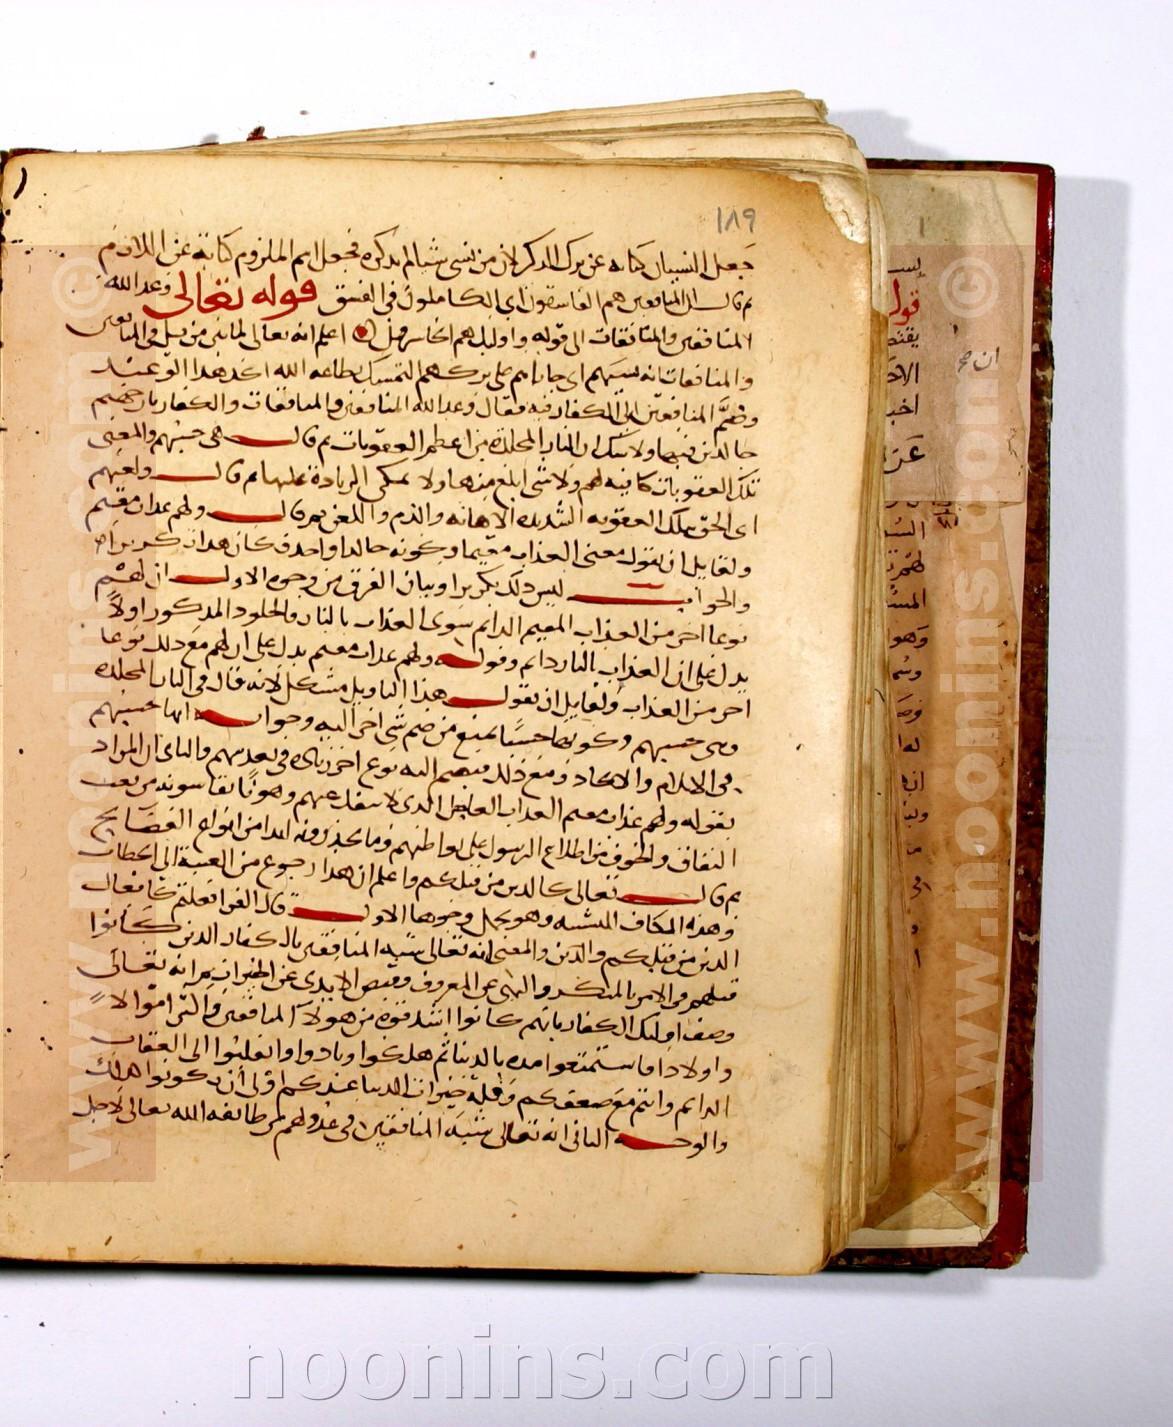 ١٨٩
جعل النسيان كناية عن ترك الذكر لان من نسي شيا لم يذكره فجعل اسم الملزوم كناية عن اللازم
ثم قال ان المنافقين هم الفاسقون اي الكاملون في الفسق قوله تعالى وعد الله
المنافقين والمنافقات الى قوله واوليك هم الخاسرون اعلم انه تعالى لما بين من قبل في المنافقين
والمنافقات انه نسيهم اي جازاهم على تركهم التمسك بطاعة الله اكد هذا الوعيد
وضم المنافقين الى الكفار فيه فقال وعد الله المنافقين والمنافقات والكفار نار جهنم
خالدين فيها ولا شك ان النار المخلدة من اعظم العقوبات ثم قال هي حسبهم والمعنى
تلك العقوبات كافية لهم ولا شي ابلغ منها ولا يمكن الزيادة عليها ثم قال ولعنهم
اي الحق بتلك العقوبه الشديده الاهانه والذم واللعن ثم قال ولهم عذاب مقيم
ولقايل ان يقول معنى العذاب مقيما وكونه خالدا واحد فكان هذا تكريرا
والجواب ليس ذلك تكريرا وبيان الفرق من وجوه الاول ان لهم
نوعا اخر من العذاب المقيم الدايم سوى العذاب بالنار والخلود المذكور اولا
يدل على ان العذاب بالنار دايم وقوله ولهم عذاب مقيم يدل على ان لهم مع ذلك نوعا
اخر من العذاب ولقايل ان يقول هذا التاويل مشكل لانه قال في النار المخلده
وهي حسبهم وكونها حسبا يمنع من ضم شي اخر اليه وجوابه انها حسبهم
في الايلام والايجاد ومع ذلك فيضم اليه نوع اخر زيادة في تعذيبهم والثاني ان المراد
بقوله ولهم عذاب مقيم العذاب العاجل الذي لا ينفك عنهم وهو ما يقاسونه من تعب
النفاق والخوف من اطلاع الرسول على بواطنهم وما يحذرونه ابدا من انواع الفضايح
ثم قال تعالى كالذين من قبلكم واعلم ان هذا رجوع من الغيبة الى الخطاب
وهذه الكاف للتشبيه وهو يحتمل وجوها الاول قال الفرا فعلتم كافعال
الذين من قبلكم والمعنى انه تعالى شبه المنافقين بالكفار الذين كانوا
قبلهم في الامر بالمنكر والنهي عن المعروف وقبض الايدي عن الخيرات ثم انه تعالى
وصف اوليك الكفار بانهم كانوا اشد قوة من هولا المنافقين واكثر اموالا
واولادا فاستمتعوا مده بالدنيا ثم هلكوا وبادوا وانقلبوا الى العقاب
الدايم وانتم مع ضعفكم وقلة خيرات الدنيا عندكم اولى ان تكونوا كذلك
والوجه الثاني انه تعالى شبه المنافقين في عدولهم عن طاعة الله تعالى لاجل
قوله
noonins.com